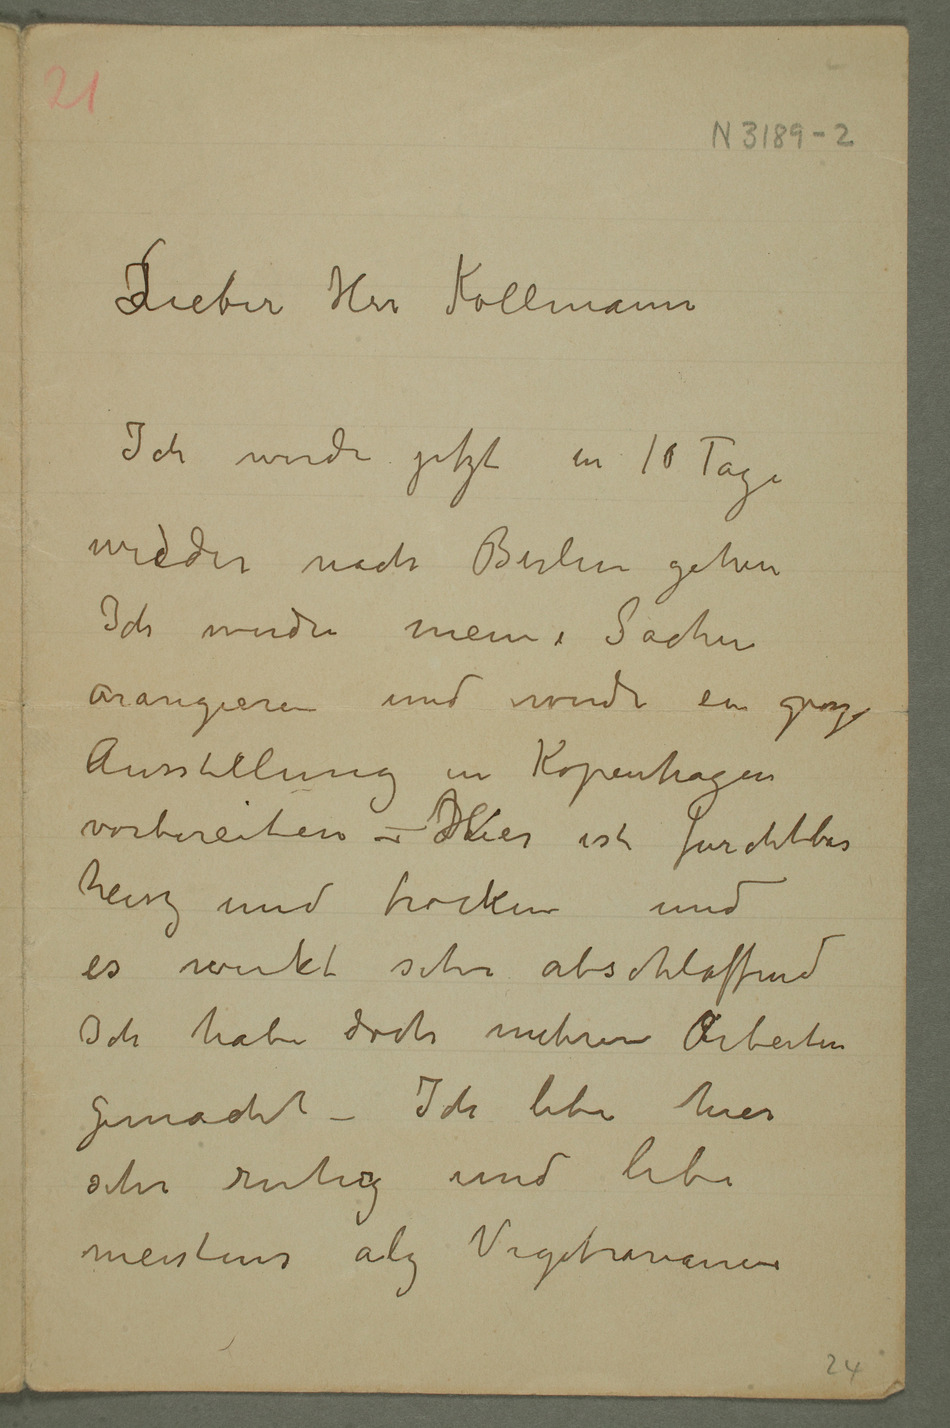 21
N 3189-2
Lieber Herr Kollmann
Ich werde jetzt in 10 Tage
wieder nach Berlin gehen
Ich werde meine Sachen
arangieren und werde ein grosze
Ausstellung in Kopenhagen
vorbereiten – Hier ist furchtbar
heisz und trocken und
es wirkt sehr abschlaffend
Ich habe doch mehrere Arbeiten
gemacht – Ich lebe hier
sehr ruhig und lebe
meistens als Vegetravianer
24